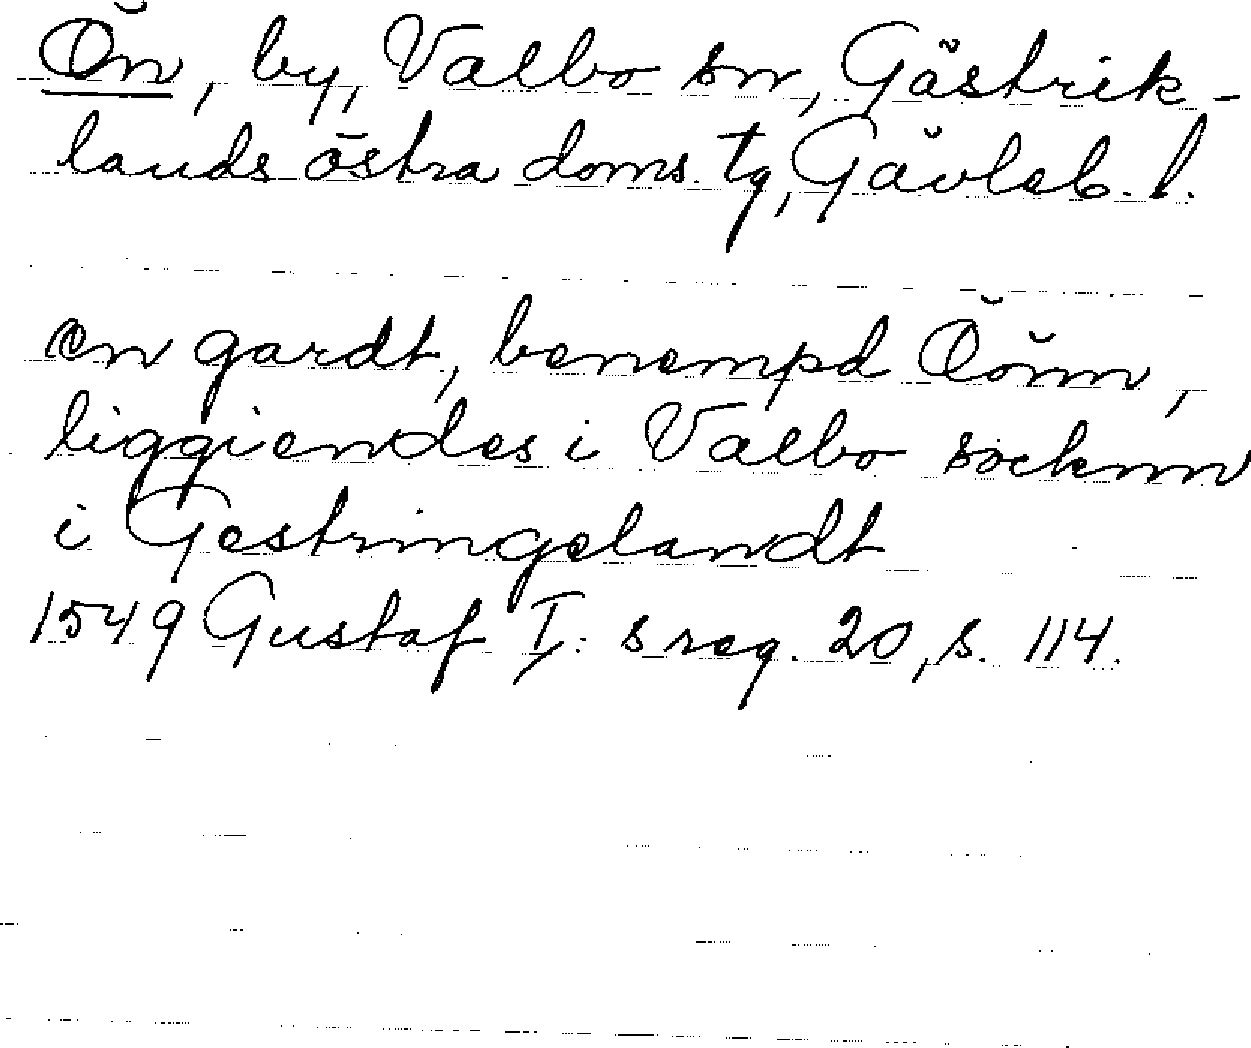 Ön, by, Valbo sn, Gästrik-
lands östra doms. tg, Gävleb. l.
en gardt, benempd Öönn,
liggiendes i Valbo socknn
i Gestringelandt
1549 Gustaf I:s reg. 20, s. 114.